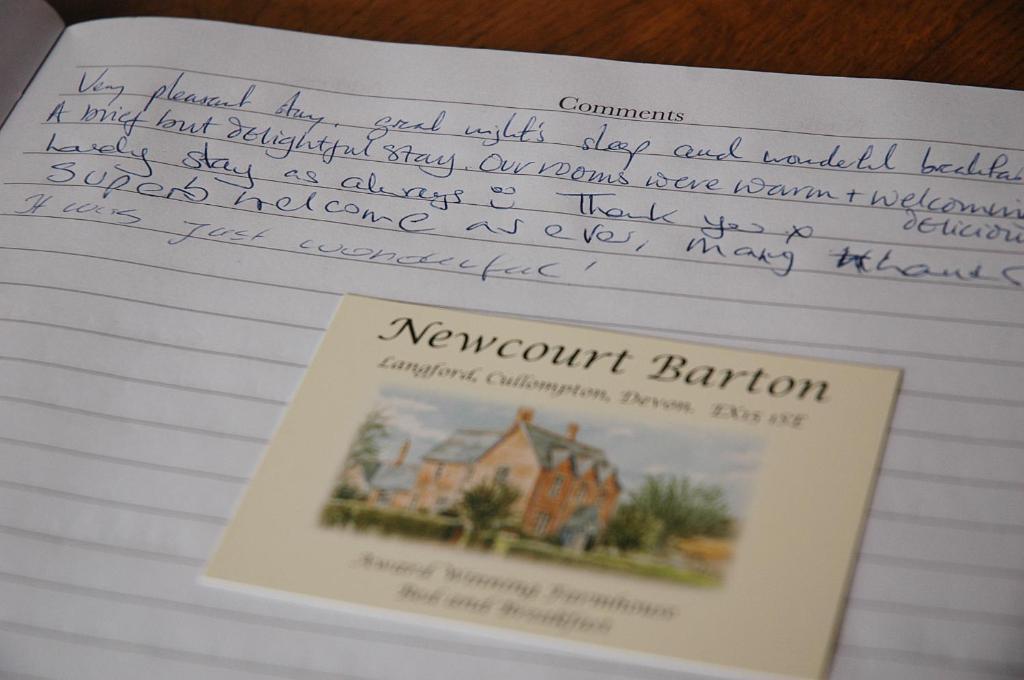 Comments
Very pleasant stay. great night's sleep and wonderful breakfast
A brief but delightful stay. Our rooms were warm + welcoming
delicious
Lovely stay as always Thank you x
Superb welcome as ever, many thanks
It was just wonderful!
Newcourt Barton
Langford, Cullompton, Devon. EX15 1SE
Award Winning Farmhouse
Bed and Breakfast